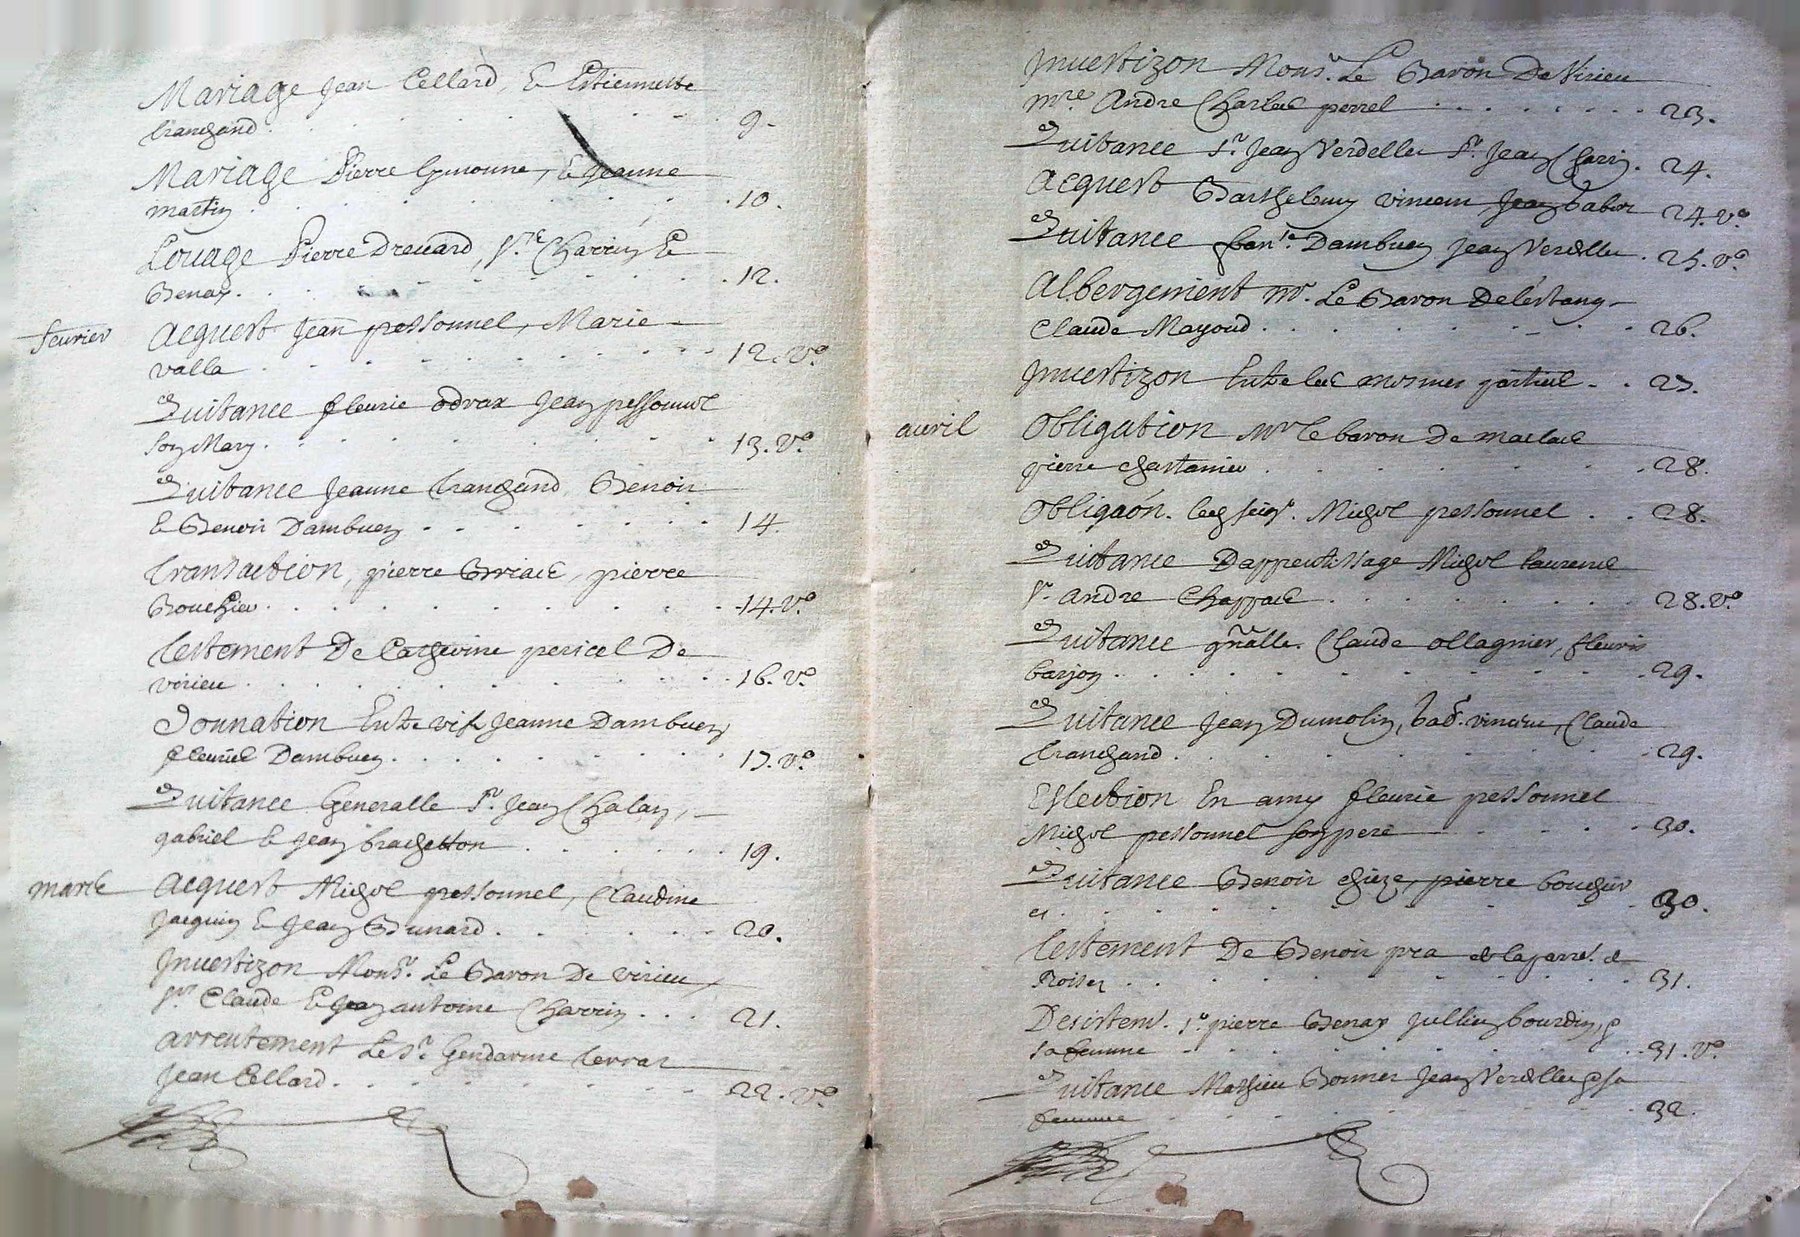 Mariage Jean Cellard, & Estiennette
tranchand. 9.
Mariage Pierre Gimonne, & Jeanne
martin 10.
Louage Pierre Drevard, Sr. Charrin &
Benay. 12.
feurier Acquest Jean pessonnel, Marie
valla 12. vo.
Quitance fleurie odrax Jean pessonnel
son Mary. 13. vo.
Quitance Jeanne tranchand Benoit
& Benoit Dambuen 14
transaction, pierre Briace, pierre
Bouchieu. 14. vo.
testement De Catherine pericel De
virieu 16. vo.
Donnation Entre vifs Jeanne Dambuen
fleurie Dambuen. 17. vo.
Quitance Generalle Sr. Jean Chalan,
gabriel & Jean brachetton 19.
marse Acquest Michel pessonnel, Claudine
Jacquin & Jean Bunard. 20.
Jnuestizon Monsr. Le Baron De virieu,
Sr Claude & Jean antoine Charrin. 21.
arrentement Le Sr. Gendarme terrat
Jean Cellard. 22. vo.
Jnuestizon Monsr. Le Baron De Virieu
mre. Andre Charles perrel 23.
Quitance Sr. Jean Verdellet Sr. Jean Charin. 24.
Acquest Barthelemy vincent Jean 24. vo.
Quitance fran.se Dambuen Jean Verdellet. 25. vo.
Albergement mr. Le Baron Delestang
Claude Mayoud. 26.
Jnuestizon Entre les mesmes parties. 27.
auril Obligation Mr le baron De maclas
pierre chastanier 28.
Obligaon. Michel pessonnel 28.
Quitance Dapprentissage Michel
Sr. andre Chappas 28. vo.
Quitance gnalle. Claude ollagnier, fleurie
barjon. 29.
Quitance Jean Dumolin, vincent, Claude
tranchand. 29.
Eslection En amy fleurie pessonnel
Michel pessonnel son pere 30.
Quitance Benoit chieze, pierre bouchier
30.
testement De Benoit pra
Roisey 31.
Desistem. Sr. pierre Benay Jullin bourdin, &
sa femme 31. vo.
Quitance Mathieu Bonnet Jean Verdellet & sa
femme 32.